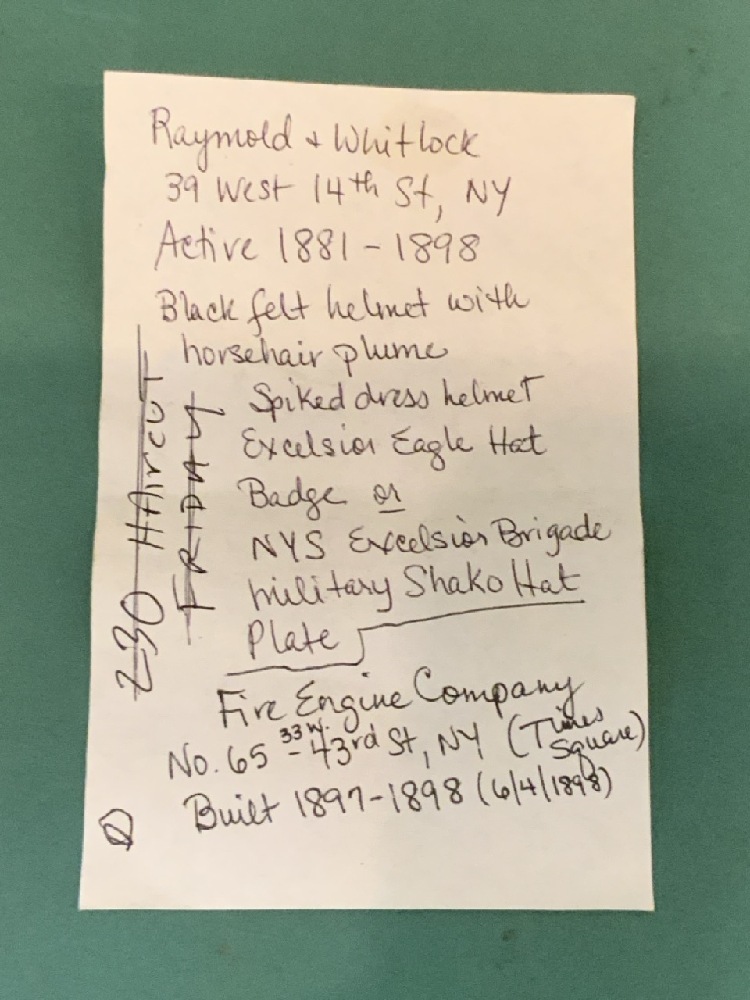 Raymold + Whitlock
39 West 14th St, NY
Active 1881 - 1898
Black felt helmet with
horsehair plume
Spiked dress helmet
Excelsior Eagle Hat
Badge or
NYS Excelsior Brigade
Military Shako Hat
Plate
Fire Engine Company
No. 65 - 33 W. 43rd St, NY (Times Square)
Built 1897-1898 (6/4/1898)
230 HAircuT
FRIDAY